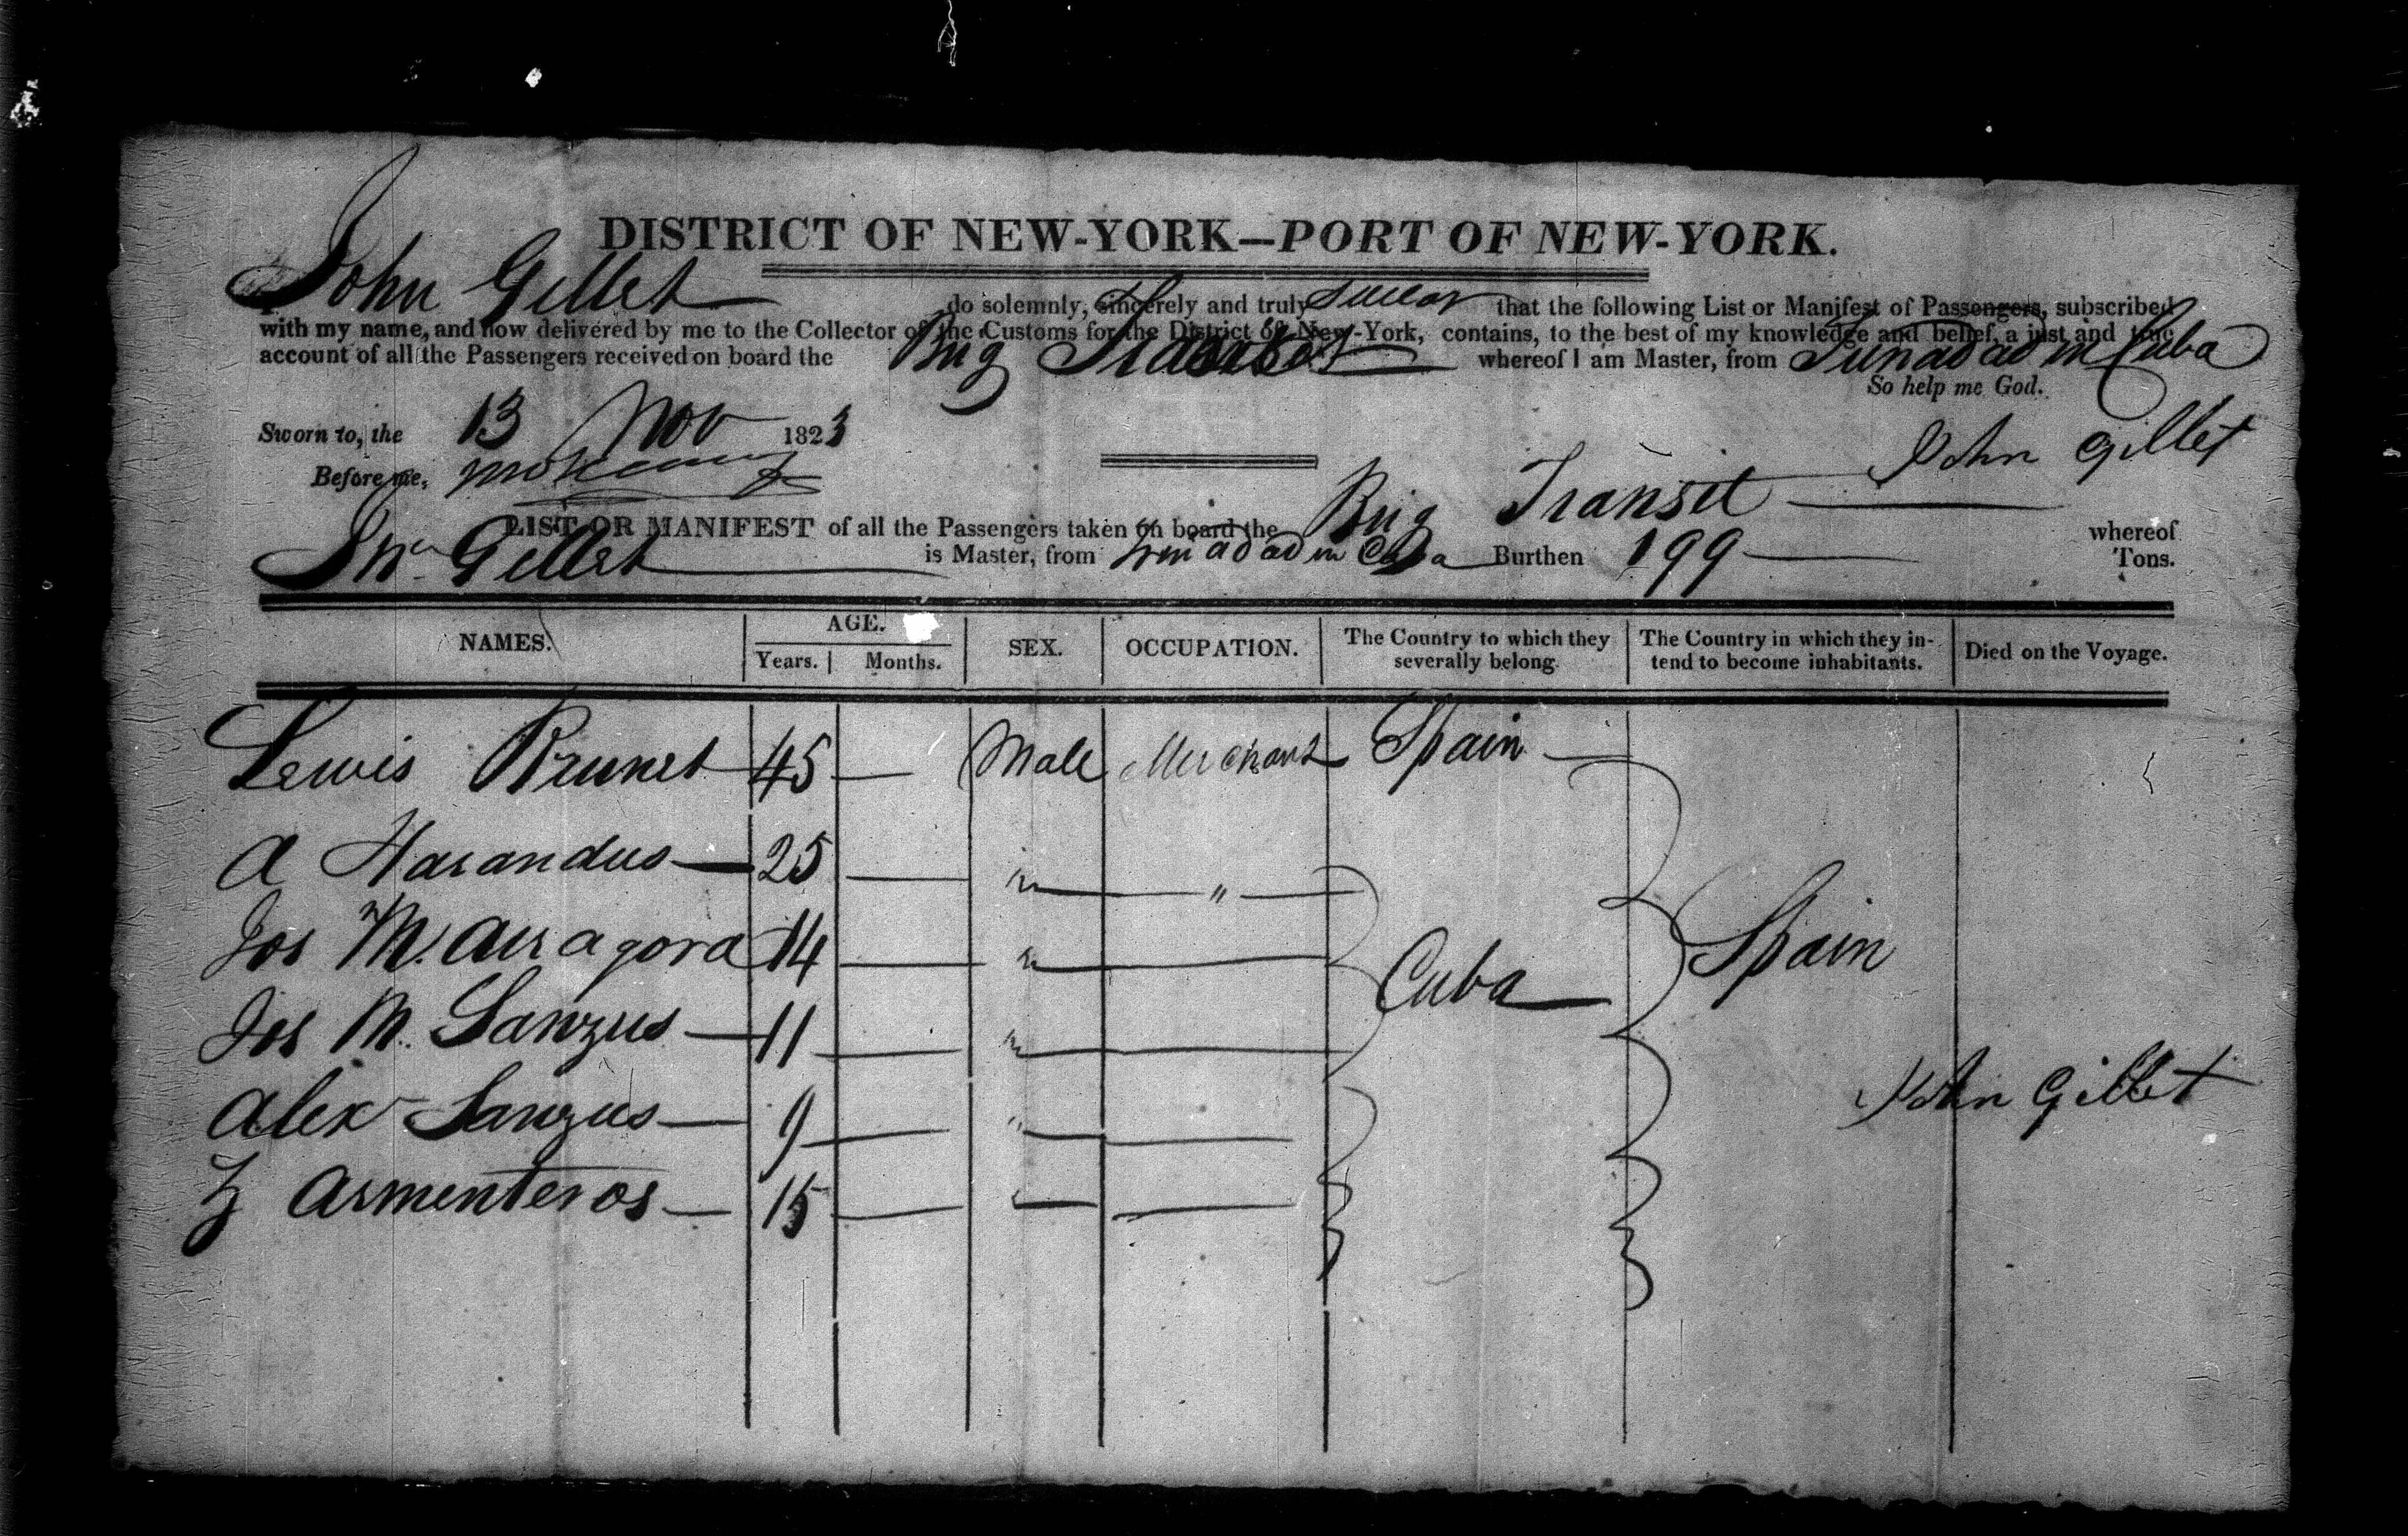 DISTRICT OF NEW-YORK—PORT OF NEW-YORK.
John Gillet do solemnly, sincerely and truly swear that the following List or Manifest of Passengers, subscribed
with my name, and now delivered by me to the Collector of the Customs for the District of New-York, contains, to the best of my knowledge and belief, a just and true
account of all the Passengers received on board the Brig whereof I am Master, from Trinadad in Cuba
So help me God.
Sworn to, the 13 Nov 1823
John Gillet
Before me,
LIST OR MANIFEST of all the Passengers taken on board the Brig Transit whereof
Jno Gillet is Master, from Trinadad in Cuba Burthen 199 Tons.
NAMES. AGE. SEX. OCCUPATION. The Country to which they severally belong. The Country in which they intend to become inhabitants. Died on the Voyage.
Years. Months.
Lewis Brunet 45 — Male Merchant Spain
A Harandus 25 — " "
Jos M. Arragora 14 — "
Jos M. Sanzus 11 — " Cuba Spain
Alex Sanzus 9 — "
Z Armenteros 15 — "
John Gillet